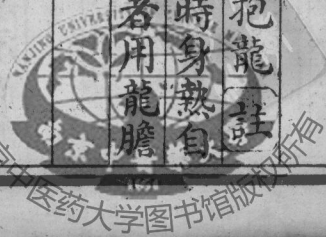 抱龍〔註
時身熱自
者用龍膽
中医药大学图书馆版权所有